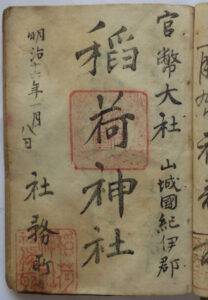 官幣大社 山城國紀伊郡
稻荷神社
社務所
明治十六年一月八日